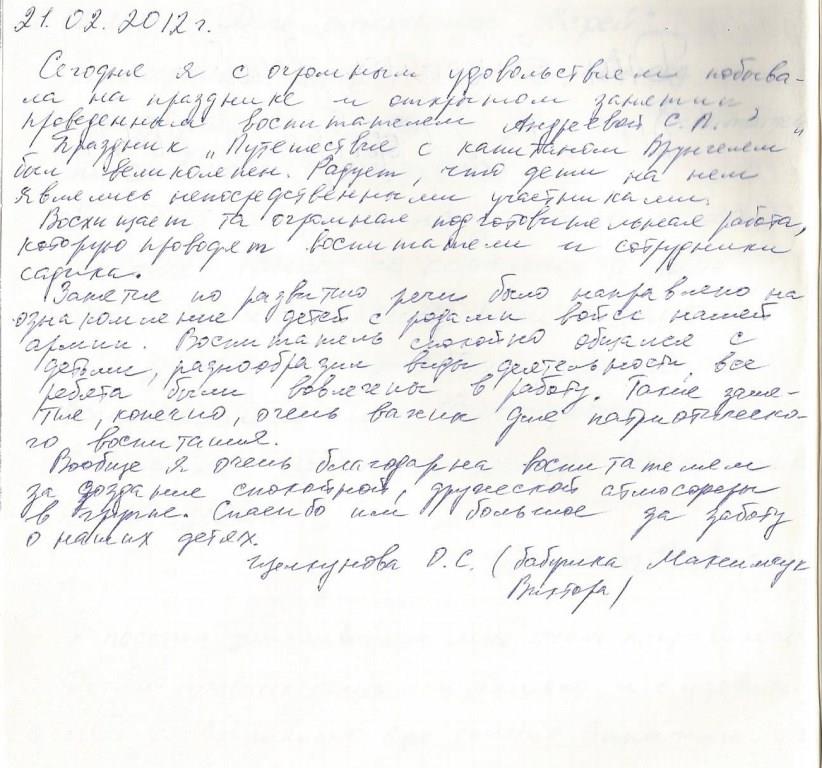 21.02.2012г.
Сегодня я с огромным удовольствием побыва-
ла на празднике и открытом занятии
проведенным воспитателем Андреевой С.А.
Праздник „Путешествие с капитаном Врунгелем"
был великолепен. Радует, что дети на нем
являлись непосредственными участниками.
Восхищает та огромная подготовительная работа,
которую проводят воспитатели и сотрудники
садика.
Занятие по развитию речи было направлено на
ознакомление детей с родами войск нашей
армии. Воспитатель спокойно общался с
детьми, разнообразил виды деятельности, все
ребята были вовлечены в работу. Такие заня-
тие, конечно, очень важны для патриотическо-
го воспитания.
Вообще я очень благодарна воспитателям
за создание спокойной, дружеской атмосферы
в группе. Спасибо им большое за заботу
о наших детях.
Щелкунова О.С. (бабушка Максимчук
Виктора)